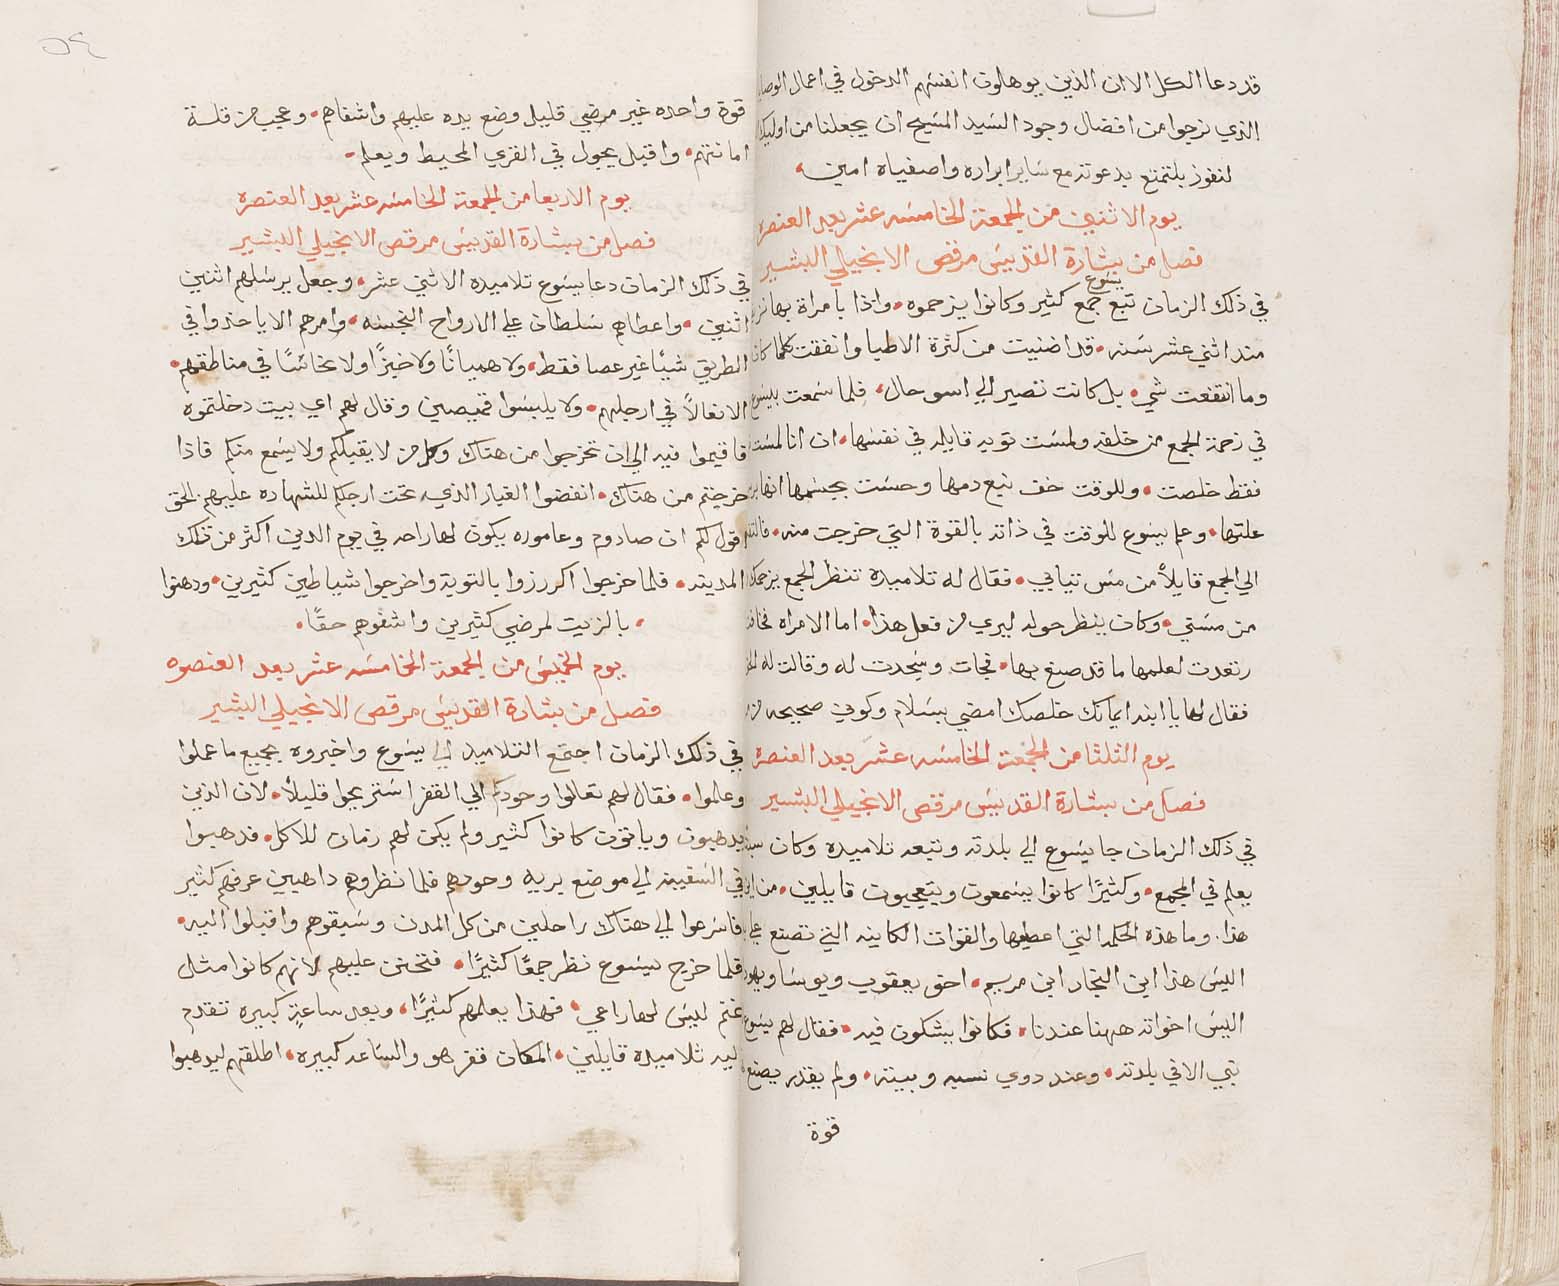 قد دعا الكل الا ان الذين يوهلون انفسهم الدخول في اعمال الوصايا
الذي نرجوا من افضال وجود السيد المسيح ان يجعلنا من اوليك
لنفوز بلتمتع بدعوته مع ساير ابراره واصفياه امين
يوم الاثنين من الجمعة الخامسه عشر بعد العنصره
فصل من بشارة القديس مرقص الانجيلي البشير
في ذلك الزمان تبع يسوع جمع كثير وكانوا يزحموه واذا بامراة بها نزيف
مند اثني عشر سنه قد اضنيت من كثرة الاطبا وانفقت كلما كان
وما انتفعت شي بل كانت تصير الي اسو حال فلما سمعت بيسوع
في زحمة الجمع من خلفه ولمست توبه قايله في نفسها ان انا لمست
فقط خلصت وللوقت جف نبع دمها وحست بجسمها انها
علتها وعلم يسوع للوقت في ذاته بالقوة التي خرجت منه فالتفت
الي الجمع قايلاً من مس تيابي فقال له تلاميده تنظر الجمع يزحمك
من مسني وكان ينظر حوله ليري من فعل هذا اما الامراه
رتعدت لعلمها ما قد صنع بها فجات وسجدت له وقالت له
فقال لها يا ابنه ايمانك خلصك امضي بسلام وكوني صحيحه
يوم الثلثا من الجمعة الخامسه عشر بعد العنصره
فصل من بشارة القديس مرقص الانجيلي البشير
في ذلك الزمان جا يسوع الي بلدته وتبعه تلاميده وكان
يعلم في المجمع وكثيرًا كانوا يسمعون ويتعجبون قايلين من اين
هذا وما هذه الحكمه التي اعطيها والقوات الكاينه التي تصنع علي
اليس هذا ابن النجار ابن مريم اخو يعقوب ويوسا ويهودا
اليس اخواته ههنا عندنا فكانوا يشكون فيه فقال لهم يسوع
نبي الا في بلدته وعند دوي نسبه وبيته ولم يقدر يصنع
قوة
٥٤
قوة واحده غير مرضي قليل وضع يده عليهم واشفاهم وعجب من قلة
امانتهم واقبل يجول في القري المحيط ويعلم
يوم الاربعا من الجمعة الخامسه عشر بعد العنصره
فصل من بشارة القديس مرقص الانجيلي البشير
في ذلك الزمان دعا يسوع تلاميده الاثني عشر وجعل يرسلهم اثنين
اثنين واعطاهم سلطان علي الارواح النجسه وامرهم الا ياخذوا في
الطريق شيًا غير عصا فقط ولا هميانًا ولا خبزًا ولا نحاسًا في مناطقهم
الا نعالاً في ارجلهم ولا يلبسوا قميصين وقال لهم اي بيت دخلتموه
فاقيموا فيه الي ان تخرجوا من هناك وكل من لا يقبلكم ولا يسمع منكم فاذا
خرجتم من هناك انفضوا الغبار الذي تحت ارجلكم للشهاده عليهم الحق
اقول لكم ان صادوم وعاموره يكون لها راحه في يوم الدين اكثر من تلك
المدينه فلما خرجوا اكرزوا بالتوبة واخرجوا شياطين كثيرين ودهنوا
بالزيت لمرضي كثيرين واشفوهم حقًا
يوم الخميس من الجمعة الخامسه عشر بعد العنصره
فصل من بشارة القديس مرقص الانجيلي البشير
في ذلك الزمان اجتمع التلاميد الي يسوع واخبروه بجميع ما عملوا
وعلموا فقال لهم تعالوا وحودكم الي القفر استريحوا قليلاً لان الذين
يدهبون وياتون كانوا كثير ولم يكن لهم زمان للاكل فدهبوا
في السفينه الي موضع بريه وحودهم فلما نظروهم داهبين عرفهم كثير
فاسرعوا الي هناك راحلين من كل المدن وسبقوهم واقبلوا اليه
فلما خرج يسوع نظر جمعًا كثيرًا فتحنن عليهم لانهم كانوا مثل
غنم ليس لها راعي فهذا يعلمهم كثيرًا وبعد ساعةٍ كبيره تقدم
اليه تلاميده قايلين المكان قفر هو والساعه كبيره اطلقهم ليدهبوا